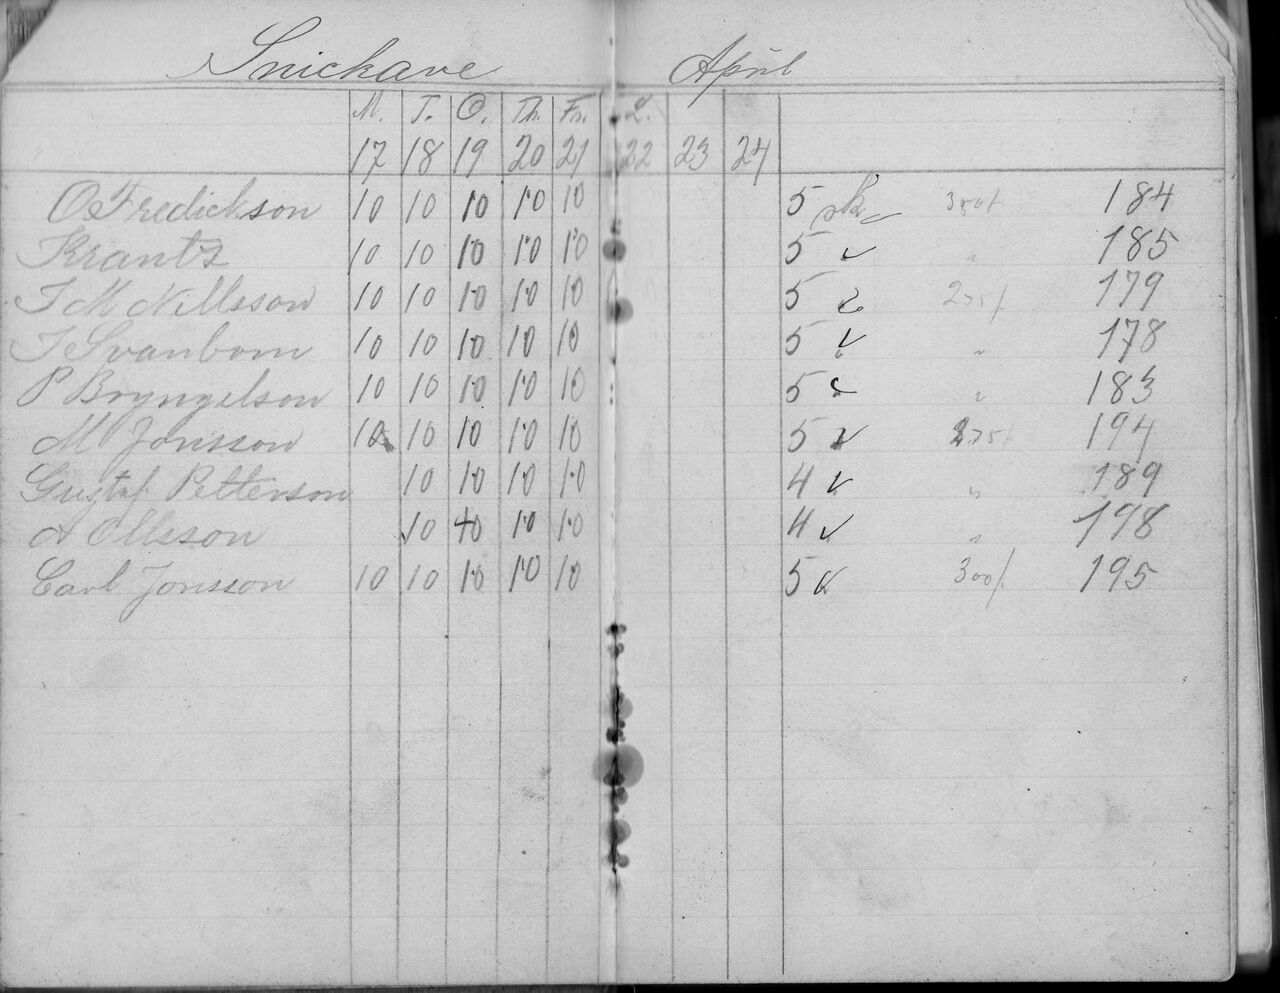 Snickare April
M. T. O. Th. Fr. L.
17 18 19 20 21 22 23 24
O Fredickson 10 10 10 10 10 5 sk 300/ 184
Krantz 10 10 10 10 10 5 " 185
J M Nillsson 10 10 10 10 10 5 275/ 179
J Svanbom 10 10 10 10 10 5 " 178
P Bryngelson 10 10 10 10 10 5 " 183
M Jonsson 10 10 10 10 10 5 275/ 194
Gustaf Petterson 10 10 10 10 4 " 189
A Ollsson 10 10 10 10 4 " 198
Carl Jonsson 10 10 10 10 10 5 300/ 195